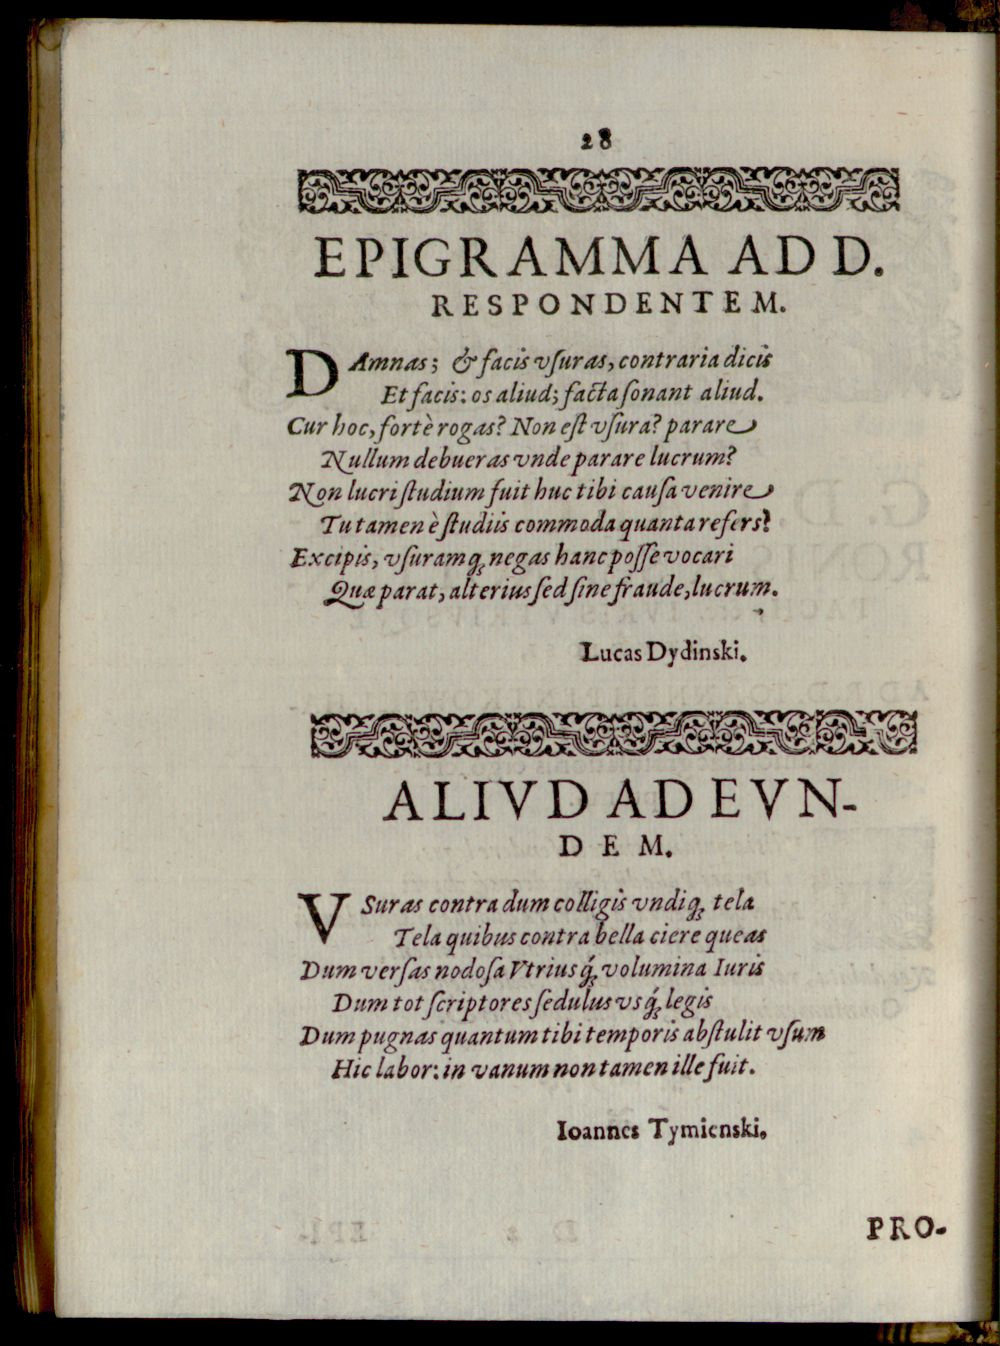 28
EPIGRAMMA AD D.
RESPONDENTEM.
DAmnas; & facis vſuras, contraria dicis
Et facis: os aliud; facta ſonant aliud.
Cur hoc, fortè rogas? Non eſt vſura? parare
Nullum debueras vnde parare lucrum?
Non lucri ſtudium fuit huc tibi cauſa venire
Tu tamen è ſtudiis commoda quanta refers?
Excipis, vſuramq; negas hanc poſſe vocari
Quæ parat, alterius ſed ſine fraude, lucrum.
Lucas Dydinski.
ALIVD AD EVN-
DEM.
VSuras contra dum colligis vndiq; tela
Tela quibus contra bella ciere queas
Dum verſas nodoſa Vtriusq́; volumina Iuris
Dum tot ſcriptores ſedulus vsq́; legis
Dum pugnas quantum tibi temporis abſtulit vſum
Hic labor: in vanum non tamen ille fuit.
Ioannes Tymienski.
PRO-